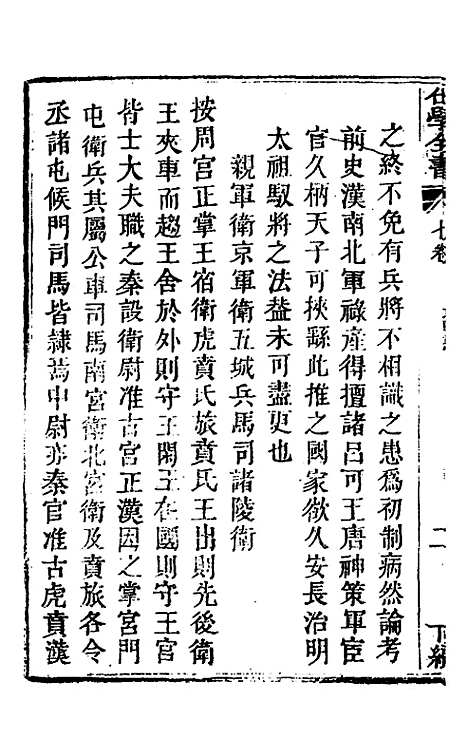 仕學全書
七卷
二
下編
之終不免有兵將不相識之患爲初制病然論考
前史漢南北軍祿產得擅諸呂可王唐神策軍宦
官久柄天子可挾繇此推之國家欲久安長治明
太祖馭將之法葢未可盡更也
親軍衛京軍衛五城兵馬司諸陵衛
按周宮正掌王宿衛虎賁氏旅賁氏王出則先後衛
王夾車而趨王舍於外則守王閑王在國則守王宮
皆士大夫職之秦設衛尉准古宮正漢因之掌宮門
屯衛兵其屬公車司馬南宮衛北宮衛及賁旅各令
丞諸屯候門司馬皆隸焉中尉亦秦官准古虎賁漢